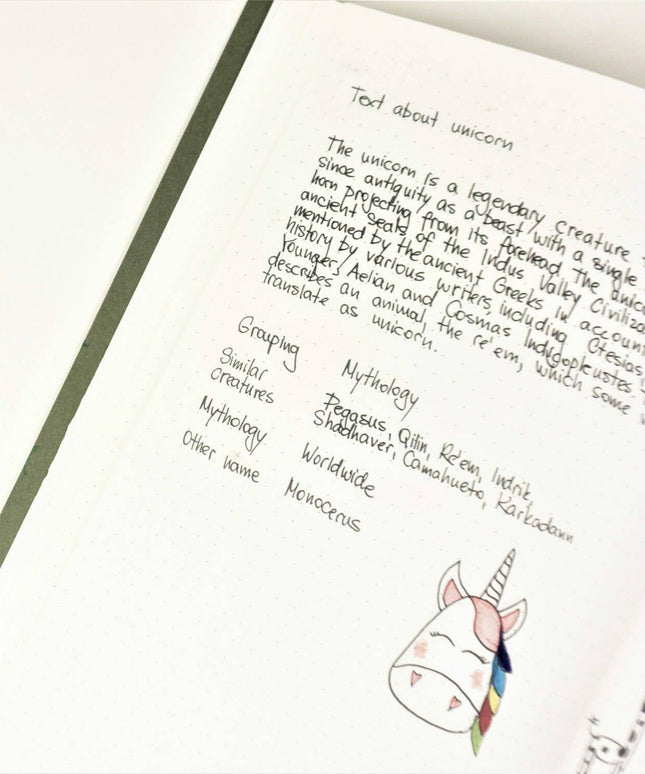 Text about unicorn
The unicorn is a legendary creature
since antiquity as a beast with a single
horn projecting from its forehead The
ancient seals of the Indus Valley
mentioned by the ancient Greeks in
history by various writers, including Ctesias,
Younger, Aelian and Cosmas
describes an animal, the re'em, which some
translate as unicorn.
Grouping Mythology
Similar Pegasus, Qilin, Re'em, Indrik,
creatures Shadhavar, Camahueto, Karkadann
Mythology Worldwide
Other name Monocerus